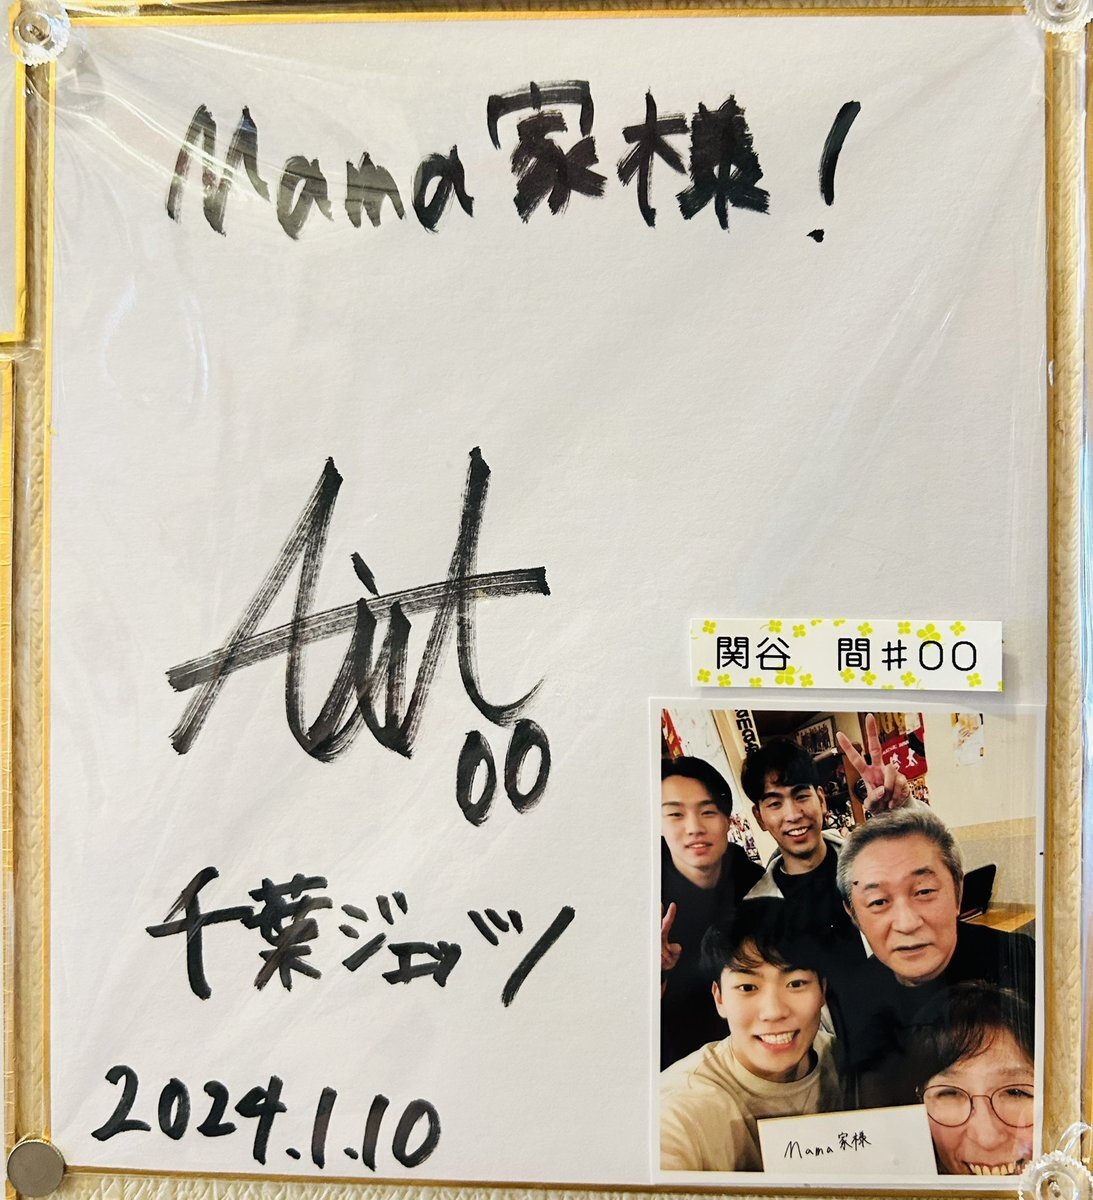 Mama家様!
00
千葉ジェッツ
2024.1.10
関谷 間#00
Mama家様